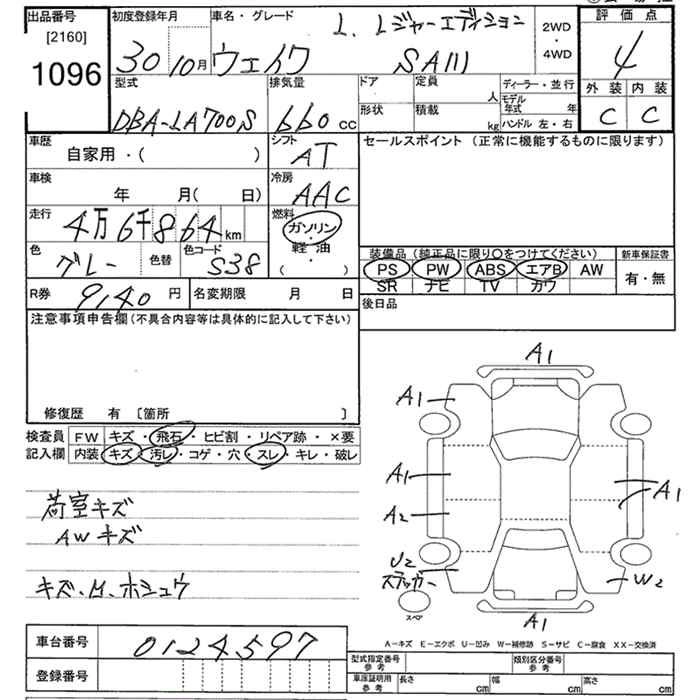 出品番号 初度登録年月 車名・グレード L. Lジャーエディション 2WD・4WD 評価点
[2160]
1096 30 10月 ウェイク SAIII 4
型式 排気量 ドア 定員 人 ディーラー・並行 外装 内装
DBA-LA700S 660cc 形状 積載 kg モデル年式 年 ハンドル 左・右 C C
車歴 シフト セールスポイント(正常に機能するものに限ります)
自家用・( ) AT
車検 冷房
年 月( 日) AAC
走行 燃料
4万6千864km ガソリン・軽油・( )
色 色替 色コード 装備品(純正品に限り○をつけてください) 新車保証書
グレー S38 PS PW ABS エアB AW 有・無
SR ナビ TV カワ
R券 9,140円 名変期限 月 日 後日品
注意事項申告欄(不具合内容等は具体的に記入して下さい)
修復歴 有 [箇所 ]
検査員 FW キズ・飛石・ヒビ割・リペア跡・×要
記入欄 内装 キズ・汚レ・コゲ・穴・スレ・キレ・破レ
荷室キズ
AWキズ
キズ.H.ホシュウ
A1
A1
A1
A1
A2
U2
ステッカー
W2
スペア
A1
A-キズ E-エクボ U-凹み W-補修跡 S-サビ C-腐食 XX-交換済
車台番号 0124597
登録番号
型式指定番号 参考 類別区分番号 参考
車庫証明用 参考 長さ cm 幅 cm 高さ cm